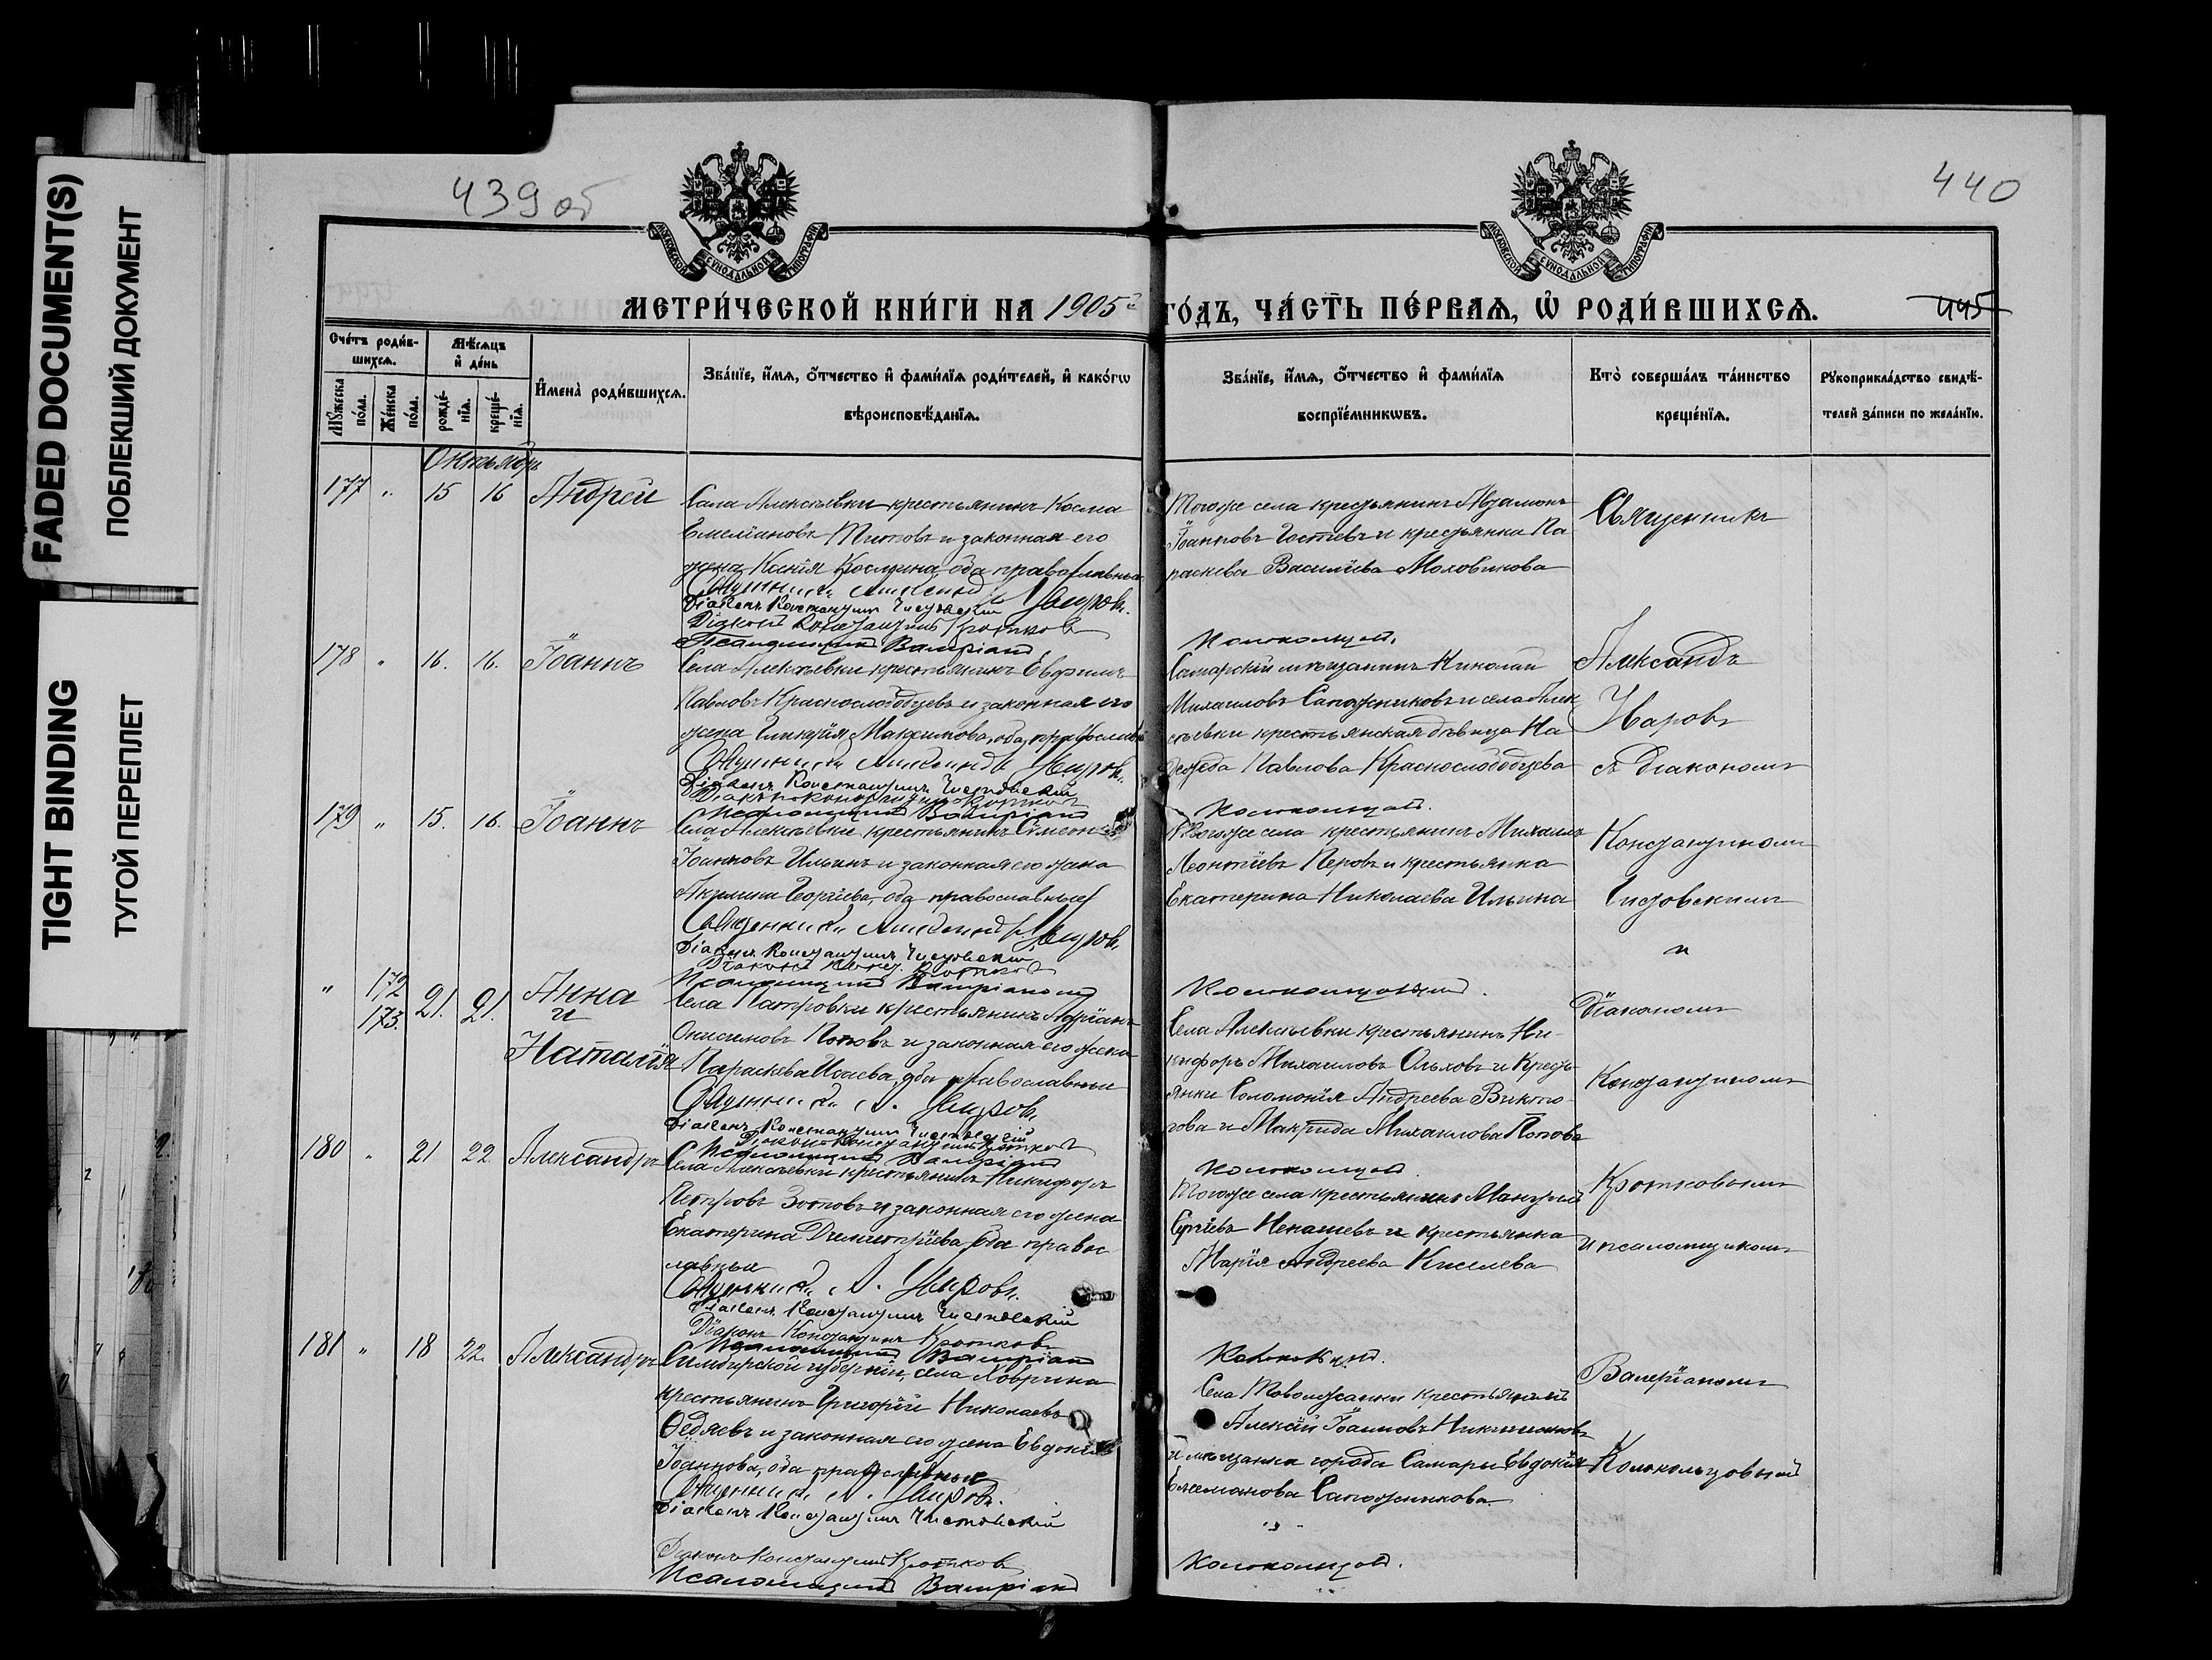 FADED DOCUMENT(S)
ПОБЛЕКШИЙ ДОКУМЕНТ
TIGHT BINDING
ТУГОЙ ПЕРЕПЛЕТ
439 об
440
МОСКОВСКОЙ СѴНОДАЛЬНОЙ ТИПОГРАФІИ
МОСКОВСКОЙ СѴНОДАЛЬНОЙ ТИПОГРАФІИ
МЕТРИ́ЧЕСКОЙ КНИ́ГИ НА 1905й ГО́ДЪ, ЧА́СТЬ ПЕ́РВАѦ, Ѡ҆ РОДИ́ВШИХСѦ.
445
Сче́тъ роди́в-
шихсѧ.
Мѣ́сѧцъ
и҆ де́нь
Мꙋ́жеска
по́ла.
Же́нска
по́ла.
рожде́-
нїѧ.
креще́-
нїѧ.
И҆мена̀ роди́вшихсѧ.
Зва́нїе, и҆́мѧ, ѻ҆́тчество и҆ фами́лїѧ роди́телей, и҆ како́гѡ
вѣроисповѣ́данїѧ.
Зва́нїе, и҆́мѧ, ѻ҆́тчество и҆ фами́лїѧ
воспрїе́мникѡвъ.
Кто̀ соверша́лъ та́инство
креще́нїѧ.
Рꙋкоприкла́дство свидѣ́-
телей за́писи по жела́нїю.
Октябрь
177 " 15 16 Андрей
Села Алексѣевки крестьянинъ Косма
Емеліановъ Титовъ и законная его
жена Ксенія Космина, оба православные
Священникъ Александръ Уваровъ.
Діаконъ Константинъ Чистовскій
Діаконъ Константинъ Кротковъ
Псаломщикъ Валеріанъ
Тогоже села крестьянинъ
Іоанновъ Гостевъ и крестьянка Па
раскева Василіева Моховикова
Колокольцовъ.
Священникъ
178 " 16. 16. Іоаннъ
Села Алексѣевки крестьянинъ Евфимъ
Павловъ Краснослободцевъ и законная его
жена Гликерія Максимова, оба православные
Священникъ Александръ Уваровъ.
Діаконъ Константинъ Чистовскій
Діаконъ Константинъ Кротковъ
Псаломщикъ Валеріанъ
Самарскій мѣщанинъ Николай
Михаиловъ Сапожниковъ и села Алек
сѣевки крестьянская дѣвица На
дежда Павлова Краснослободцева
Колокольцовъ.
Александръ
Уваровъ
съ діакономъ
179 " 15. 16. Іоаннъ
Села Алексѣевки крестьянинъ Симеонъ
Іоанновъ Ильинъ и законная его жена
Акилина Георгіева, оба православные
Священникъ Александръ Уваровъ.
Діаконъ Константинъ Чистовскій
Діаконъ Конст. Кротковъ
Псаломщикъ Валеріанъ
Тогоже села крестьянинъ Михаилъ
Леонтіевъ Перовъ и крестьянка
Екатерина Николаева Ильина
Колокольцовъ.
Константиномъ
Чистовскимъ
и
" 172 21. 21. Анна
173. и
Наталія
Села Патровки крестьянинъ Адріанъ
Онисимовъ Поповъ и законная его жена
Параскева Исаева, оба православные
Священникъ А. Уваровъ.
Діаконъ Константинъ Чистовскій
Діаконъ Константинъ Кротковъ
Псаломщикъ Валеріанъ
Села Алексѣевки крестьянинъ Ни-
кифоръ Михаиловъ Ольховъ и крест
янки Соломонія Андреева Викто-
рова и Макрида Михаилова Попова
Колокольцовъ.
Діакономъ
Константиномъ
180 " 21 22 Александръ
Села Алексѣевки крестьянинъ Никифоръ
Петровъ Зотовъ и законная его жена
Екатерина Димитріева, оба правос
лавные
Священникъ А. Уваровъ.
Діаконъ Константинъ Чистовскій
Діаконъ Константинъ Кротковъ
Псаломщикъ Валеріанъ
Тогоже села крестьянинъ
Сергіевъ Ненашевъ и крестьянка
Марія Андреева Киселева
Колокольцовъ.
Кротковымъ
и псаломщикомъ
181 " 18 22. Александръ
Симбирской губерніи, села Ховрина
крестьянинъ Григорій Николаевъ
Ѳедяевъ и законная его жена Евдокія
Іоаннова, оба православные
Священникъ А. Уваровъ.
Діаконъ Константинъ Чистовскій
Діаконъ Константинъ Кротковъ
Псаломщикъ Валеріанъ
Села Таволжанки крестьянинъ
Алексій Іоанновъ
и мѣщанка города Самары Евдокія
Сапожникова
Колокольцовъ.
Валеріаномъ
Колокольцовымъ